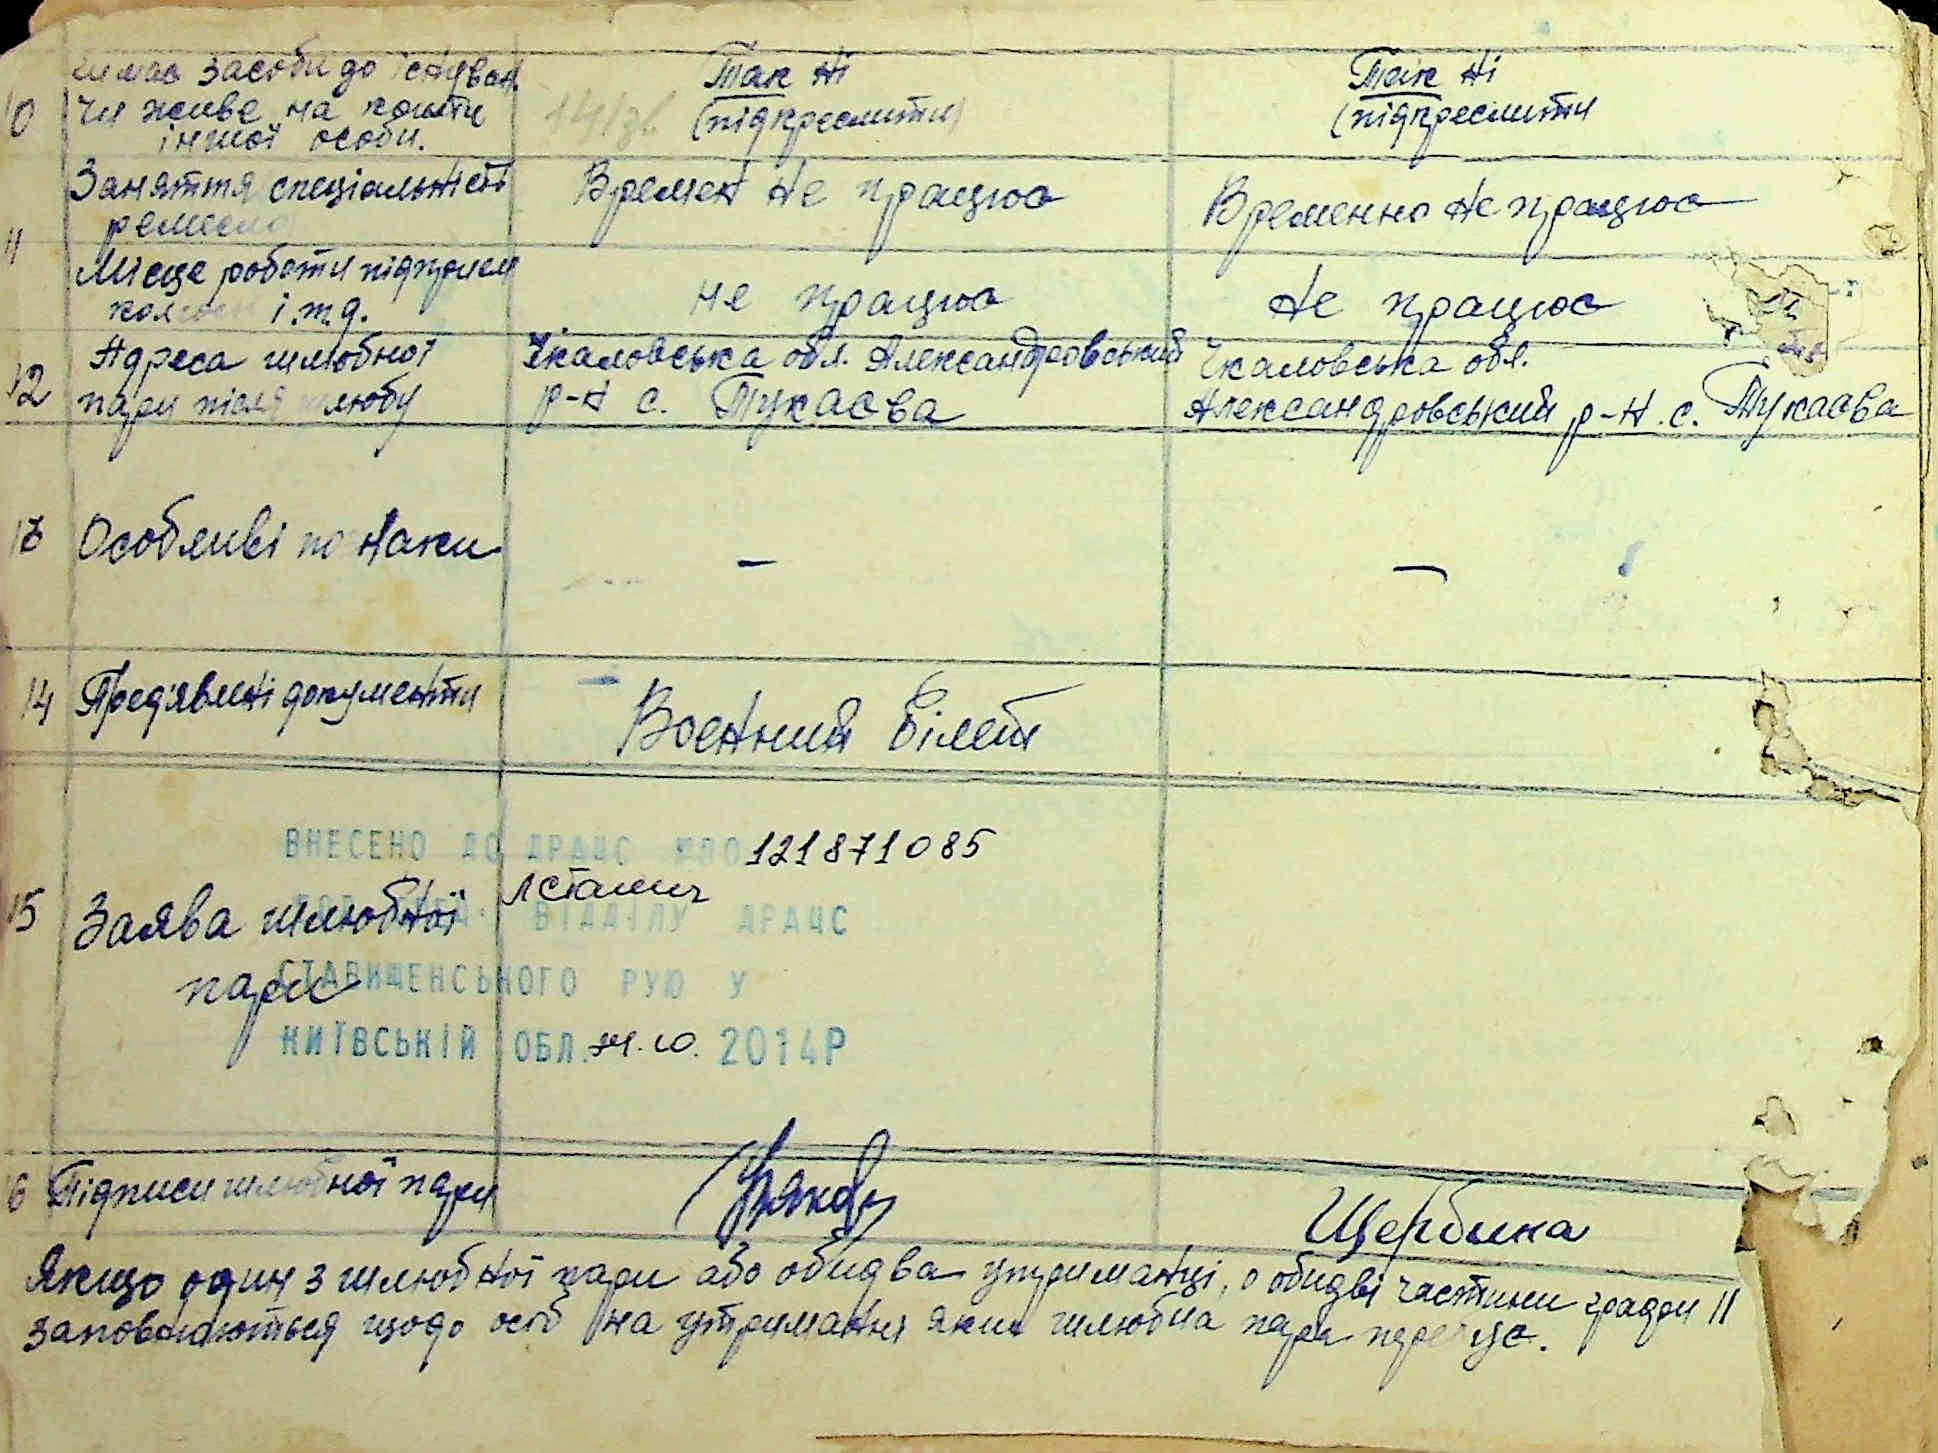 10 Чи має засоби до існуван.
Чи живе на кошти
іншої особи.
Так Ні
(підкреслити)
Так Ні
(підкреслити
11 Заняття спеціальність
ремесло
Времен не працює
Временно не працює
Місце роботи підприєм
і.т.д.
не працює
не працює
12 Адреса шлюбної
пари після шлюбу
Чкаловська обл. Александровський
р-н с. Тукаєва
Чкаловська обл.
Александровський р-н. с. Тукаєва
13 Особливі познаки
—
—
14 Пред'явлині документи
Воєнний білет
ВНЕСЕНО ДО ДРАЦС 121871085
ВІДДІЛУ ДРАЦС
15 Заява шлюбної
пари
СТАВИЩЕНСЬКОГО РУЮ У
КИЇВСЬКІЙ ОБЛ. 10. 2014Р
16 Підписи шлюбної пари
Щербина
Якщо один з шлюбної пари або обидва утриманці, о обидві частини графи 11
заповнюються щодо осіб на утриманні яких шлюбна пара перебує.